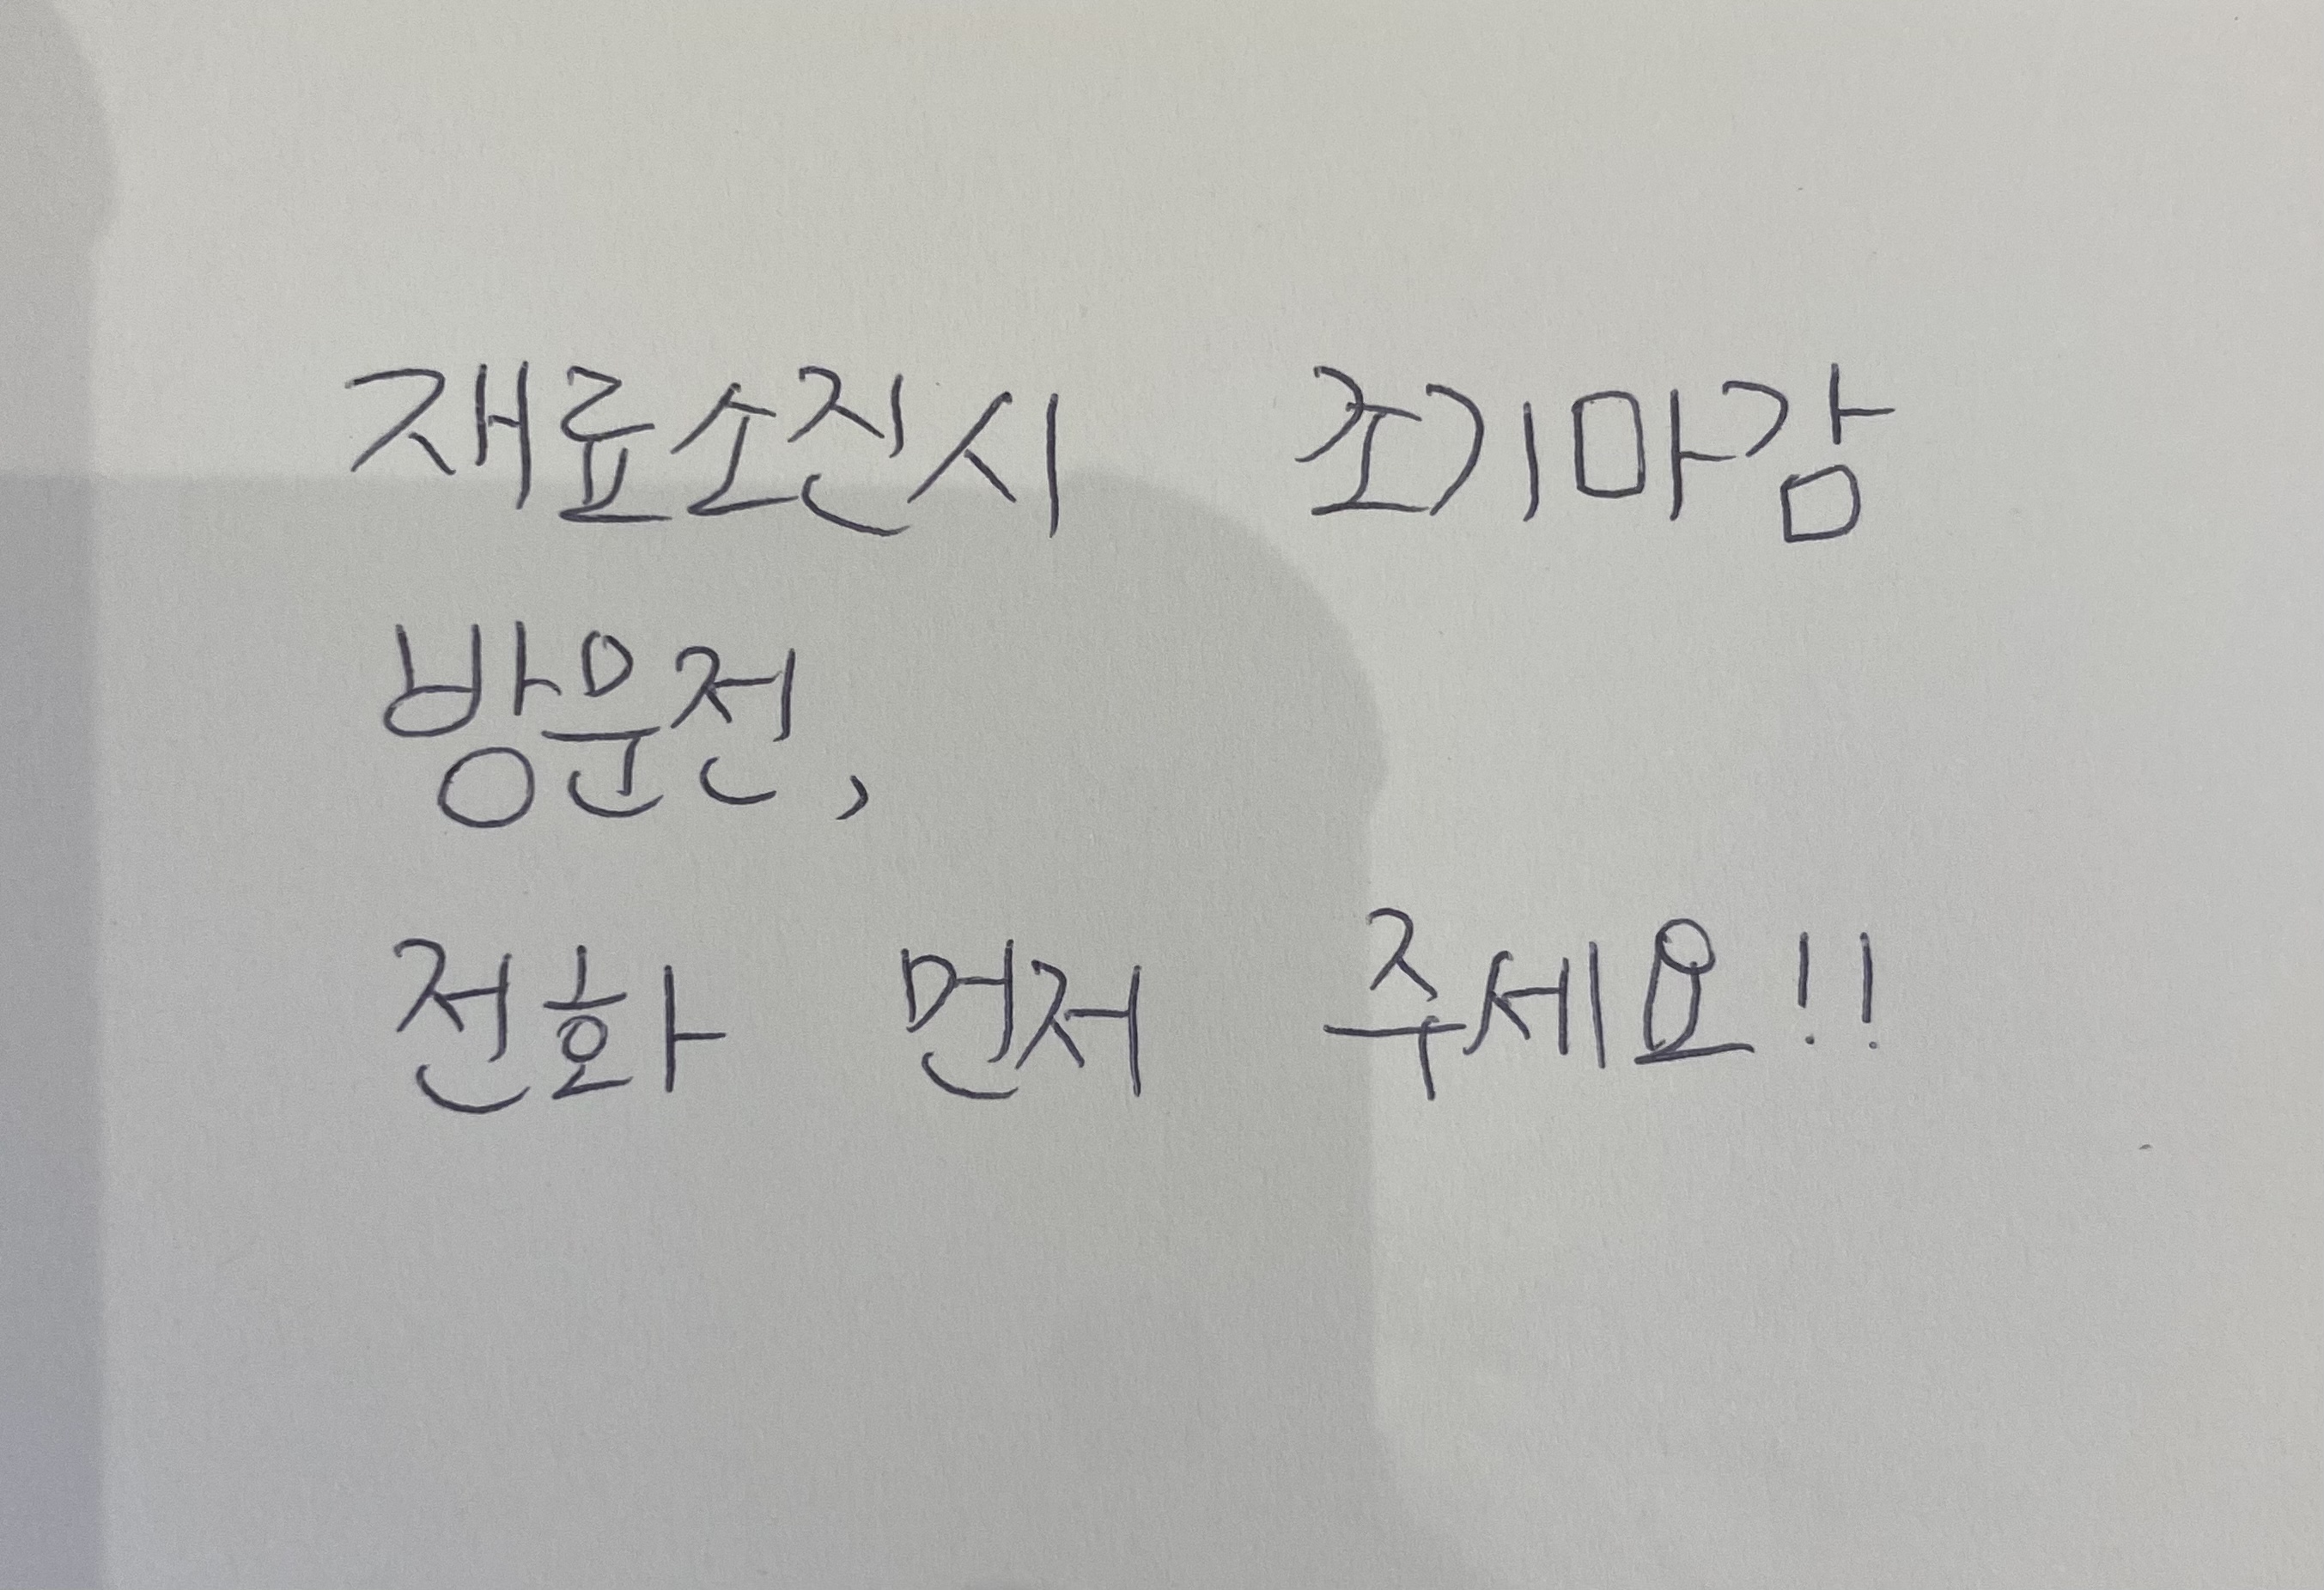 재료소진시 조기마감
방문전,
전화 먼저 주세요!!